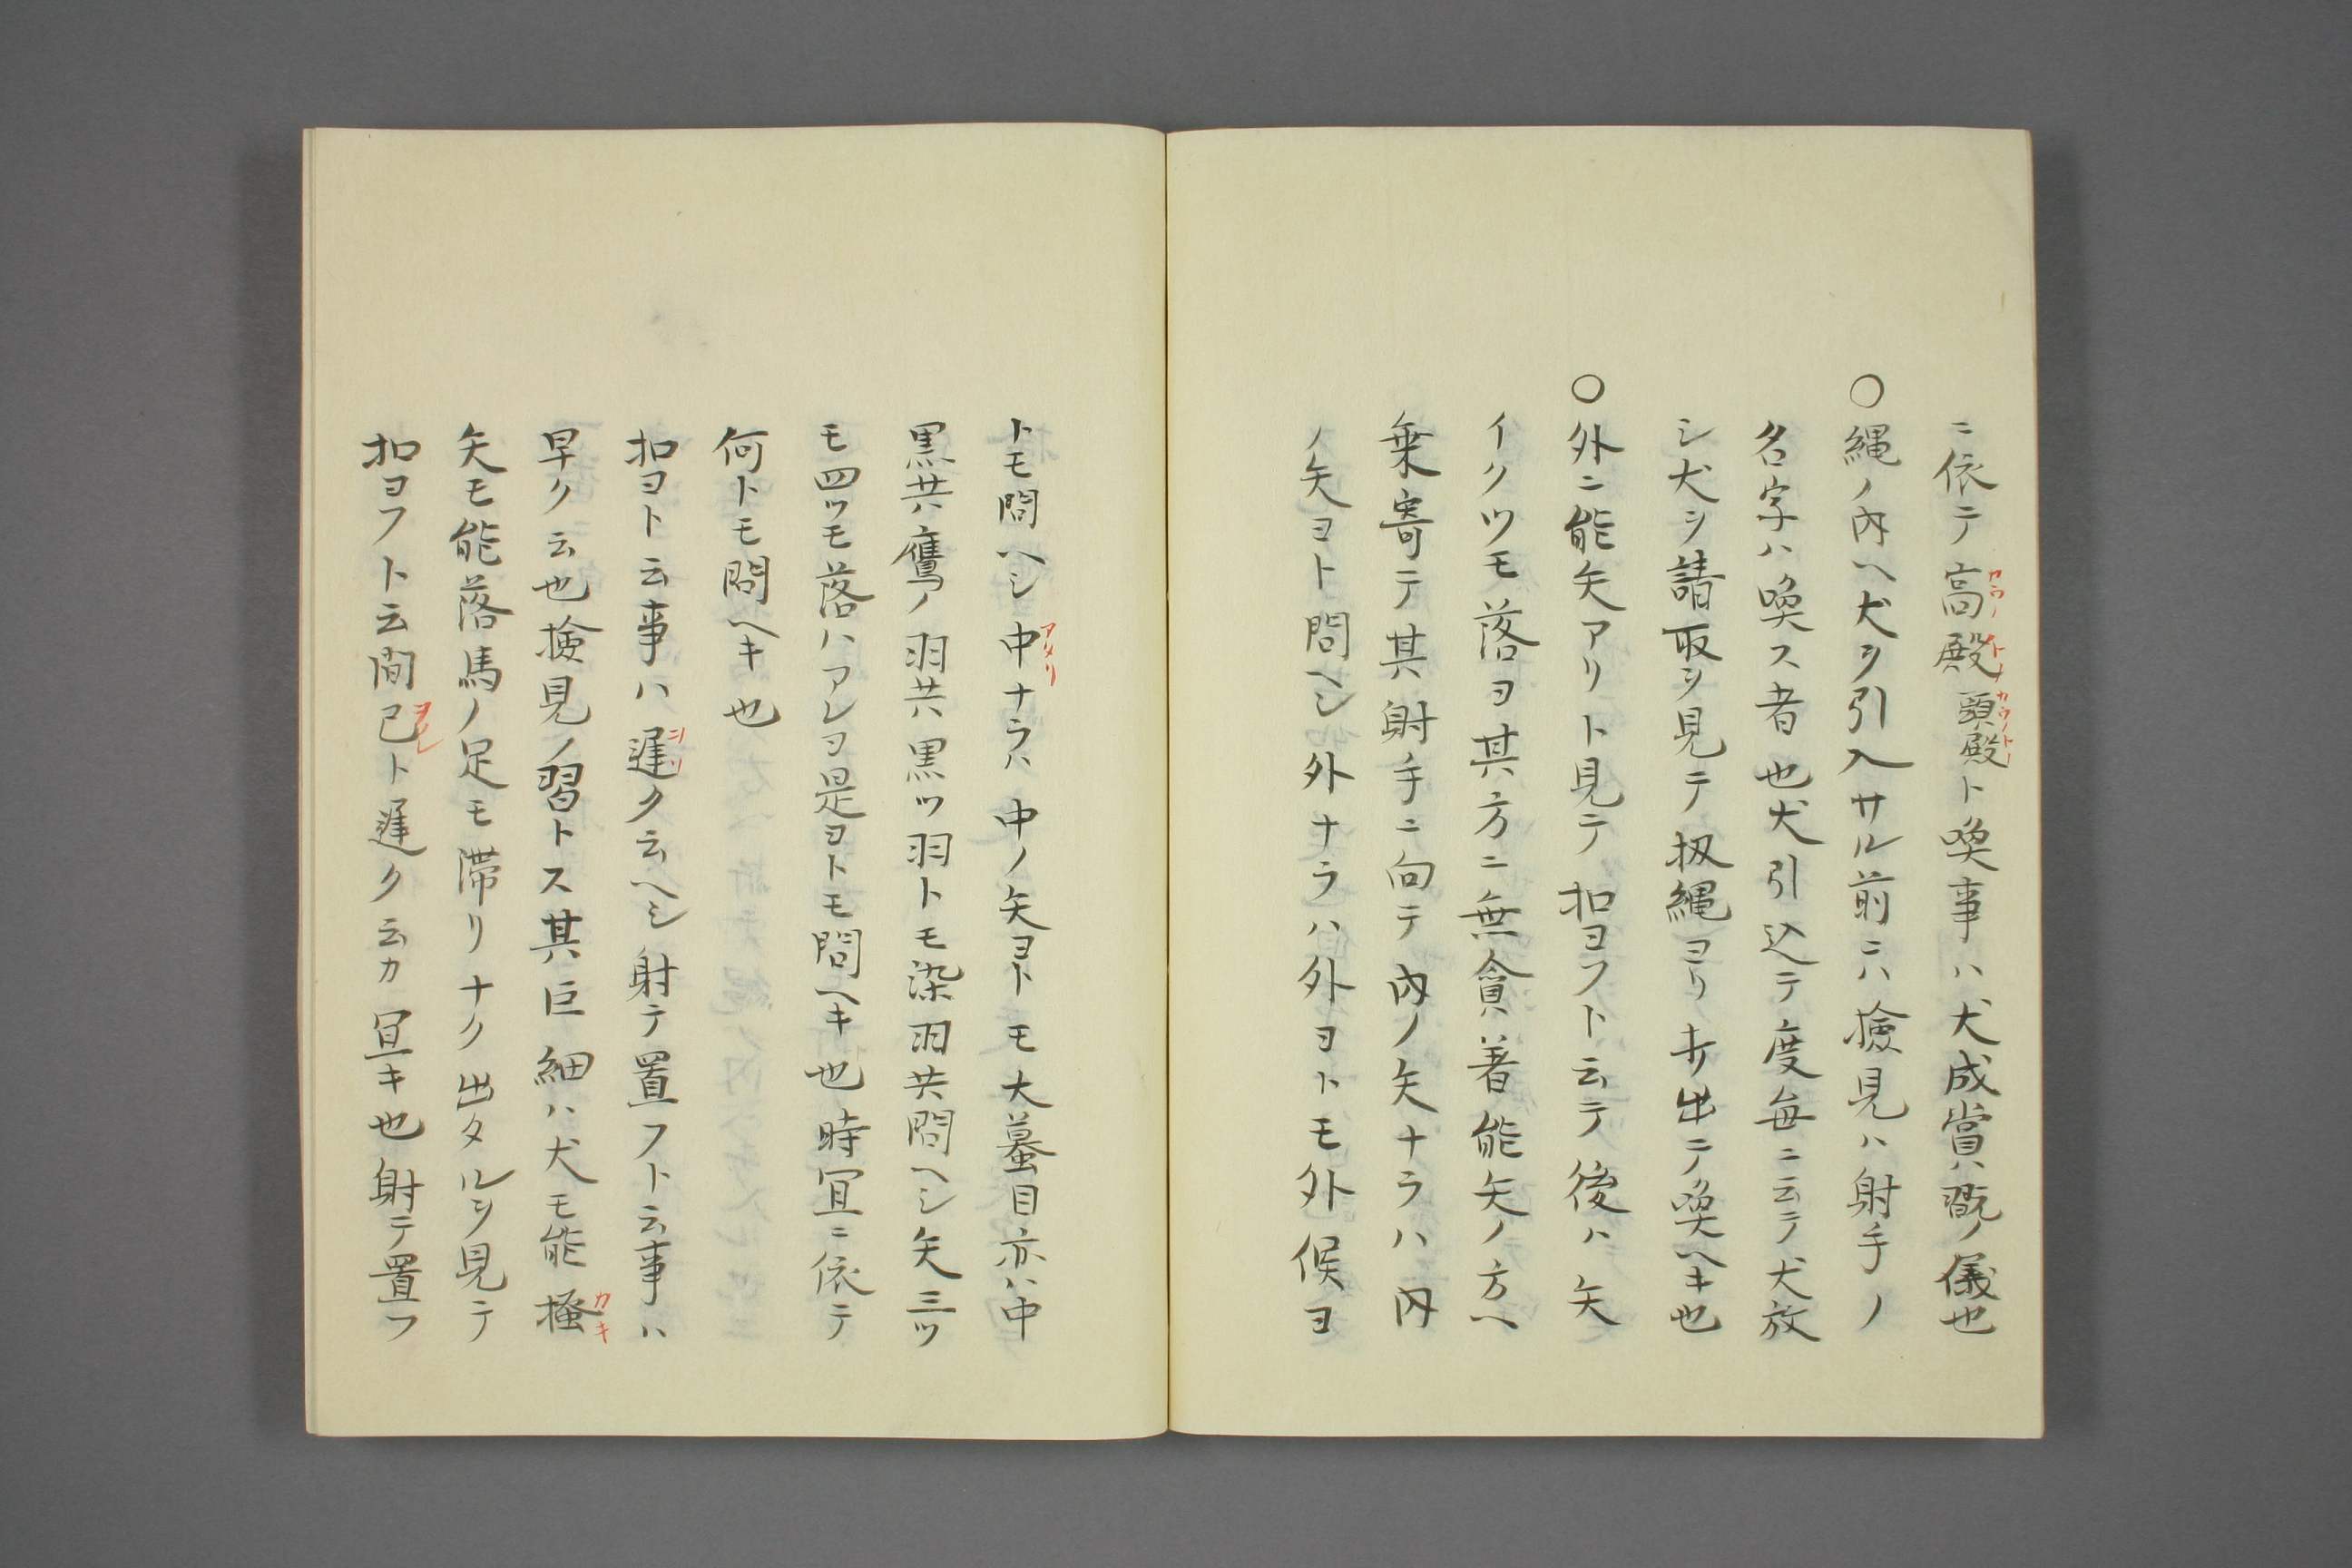 ニ依テ高殿頭殿ト喚事ハ犬成賞翫ノ儀也
○縄ノ内ヘ犬ヲ引入サル前ニハ撿見ハ射手ノ
名字ハ喚ス者也犬引込テ度毎ニ云テ犬放
シ犬ヲ請取ヲ見テ扨縄ヨリ打出ニテ喚ヘキ也
○外ニ能矢アリト見テ扣ヨフト云テ後ハ矢
イクツモ落ヨ其方ニ無貪着能矢ノ方ヘ
乗寄テ其射手ニ向テ内ノ矢ナラハ内
ノ矢ヨト問ヘシ外ナラハ外ヨトモ外候ヨ
トモ問ヘシ中ナラハ中ノ矢ヨトモ大蟇目亦ハ中
黒共ハ鷹ノ羽共黒ツ羽トモ染羽共問ヘシ矢三ツ
モ四ツモ落ハアレヨ是ヨトモ問ヘキ也時宜ニ依テ
何トモ問ヘキ也
扣ヨト云事ハ遅ク云ヘシ射テ置フト云事ハ
早ク云也撿見ノ習トス其巨細ハ犬モ能掻
矢モ能落馬ノ足モ滞リナク出タルヲ見テ
扣ヨフト云間已ト遅ク云カ宜キ也射テ置フ